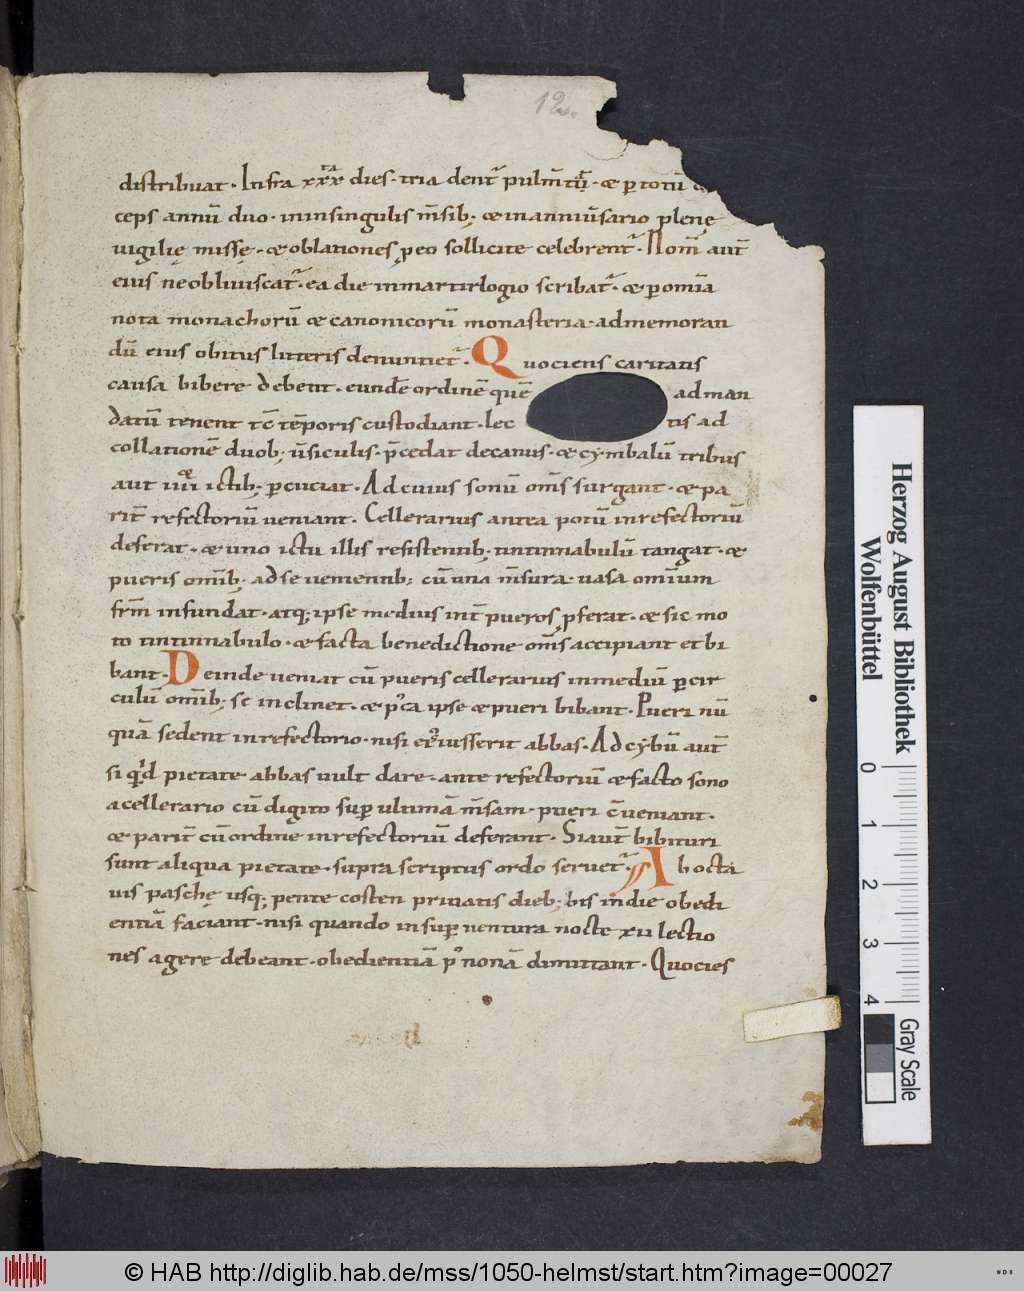 12.
distribuat. Infra xxx^ta dies. tria dent᷒ pulm̄tū. & p̱ totū
ceps annū duo. in insingulis m̄sib; & in anniūsario plenę
uigilię missę. & oblationes ꝓ eo sollicite celebrent᷒. Nom̄ aut̄
eius ne obliuiscat᷒. ea die in martirlogio scribat᷒. & p̱ om̄ia
nota monachorū & canonicorū monasteria. ad memoran
dū eius obitus litteris denuntiet᷒. Quociens caritatis
causa bibere debent. eunde ordinē quē ad man
datū tenent tc̄ tēporis custodiant. lec tis ad
collationē duob; ūsiculis. p̄cedat decanus. & cymbalū tribus
aut iiii^or ictib; p̱cuciat. Ad cuius sonū om̄s surgant. & pa
rit̄ refectoriū ueniant. Cellerarius antea potū in refectoriū
deferat. & uno ictu illis resistentib; tintinnabulū tangat. &
pueris om̄ib; ad se uenientib; cū una m̄sura. uasa omīum
fr̄m infundat. atq; ipse medius int̄ pueros ꝓferat. & sic mo
to tintinnabulo. & facta benedictione om̄s accipiant et bi
bant. Deinde ueniat cū pueris cellerarius in mediū p̱ cir
culū om̄ib; se inclinet. & p᷒ea ipse & pueri bibant. Pueri nū
quā sedent in refectorio. nisi ei iusserit abbas. Ad cybū aut̄
si qⁱd pietate abbas uult dare. ante refectoriū & facto sono
a cellerario cū digito sup̱ ultimā m̄sam. pueri c̄ueniant.
& parit̄ cū ordine in refectoriū deferant. Si aut̄ bibituri
sunt aliqua pietate. supra scriptus ordo seruet᷒. Ab octa
uis paschę usq; pente costen priuatis dieb; bis in die obedi
entiā faciant. nisi quando insup̱ uentura nocte xii lectio
nes agere debeant. obedientiā p᷒ nonā dimittant. Quocies
Herzog August Bibliothek
Wolfenbüttel
0 1 2 3 4
Gray Scale
© HAB http://diglib.hab.de/mss/1050-helmst/start.htm?image=00027